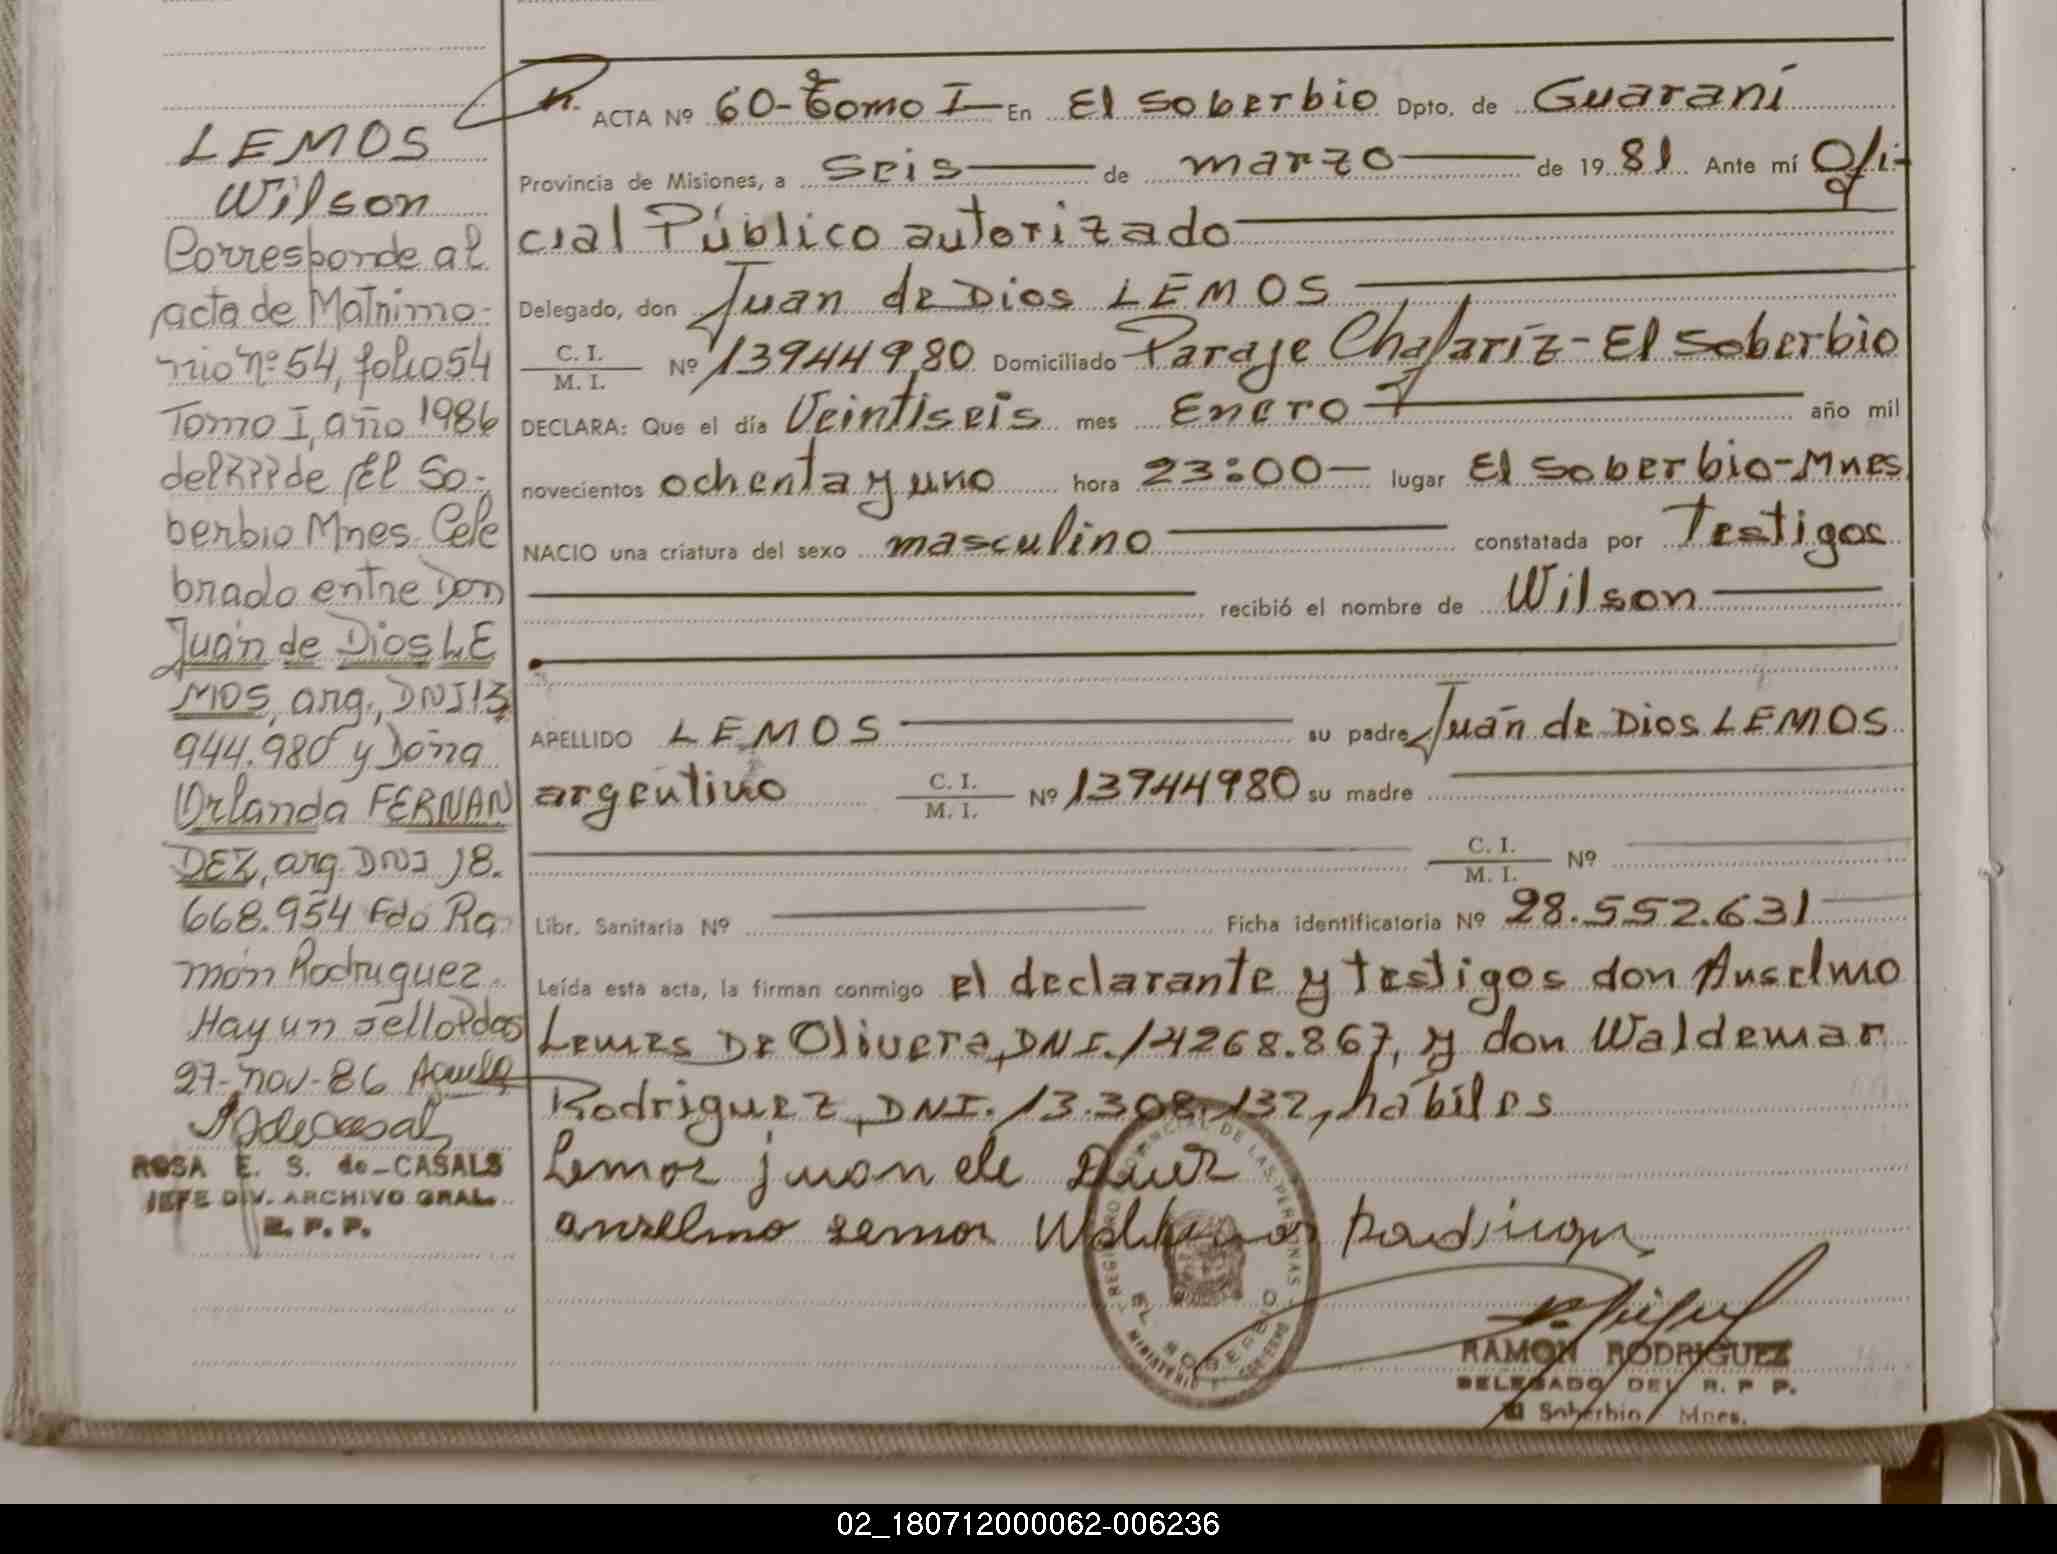 LEMOS
Wilson
Corresponde al
acta de Matrimo-
nio nº 54, folio 54
Tomo I, año 1986
del RPP de El So-
berbio Mnes. Cele
brado entre Don
Juan de Dios LE
MOS, arg., DNI 13.
944.980 y Doña
Orlanda FERNAN
DEZ, arg. DNI 18.
668.954 Fdo Ra
món Rodriguez
Hay un sello Pdas
27-nov-86
ROSA E. S. de CASALS
JEFE DIV. ARCHIVO GRAL.
R. P. P.
N. ACTA Nº 60-Tomo I En El Soberbio Dpto. de Guaraní
Provincia de Misiones, a Seis de marzo de 1981 Ante mí Ofi-
cial Público autorizado
Delegado, don Juan de Dios LEMOS
C. I.
M. I. Nº 13944980 Domiciliado Paraje Chafariz - El Soberbio
DECLARA: Que el día Veintiseis mes Enero año mil
novecientos ochenta y uno hora 23:00 lugar El Soberbio-Mnes
NACIO una criatura del sexo masculino constatada por Testigos
recibió el nombre de Wilson
APELLIDO LEMOS su padre Juan de Dios LEMOS
argentino C. I.
M. I. Nº 13944980 su madre
C. I.
M. I. Nº
Libr. Sanitaria Nº Ficha identificatoria Nº 28.552.631
Leída esta acta, la firman conmigo el declarante y testigos don Anselmo
Lemes De Olivera, DNI. 14268.867, y don Waldemar
Rodriguez, DNI. 13.308.132, hábiles
Lemos juan de Dios
anselmo lemos Waldemar Rodrigues
REGISTRO PROVINCIAL DE LAS PERSONAS
EL SOBERBIO
RAMON RODRIGUEZ
DELEGADO DEL R. P. P.
El Soberbio Mnes.
02_180712000062-006236